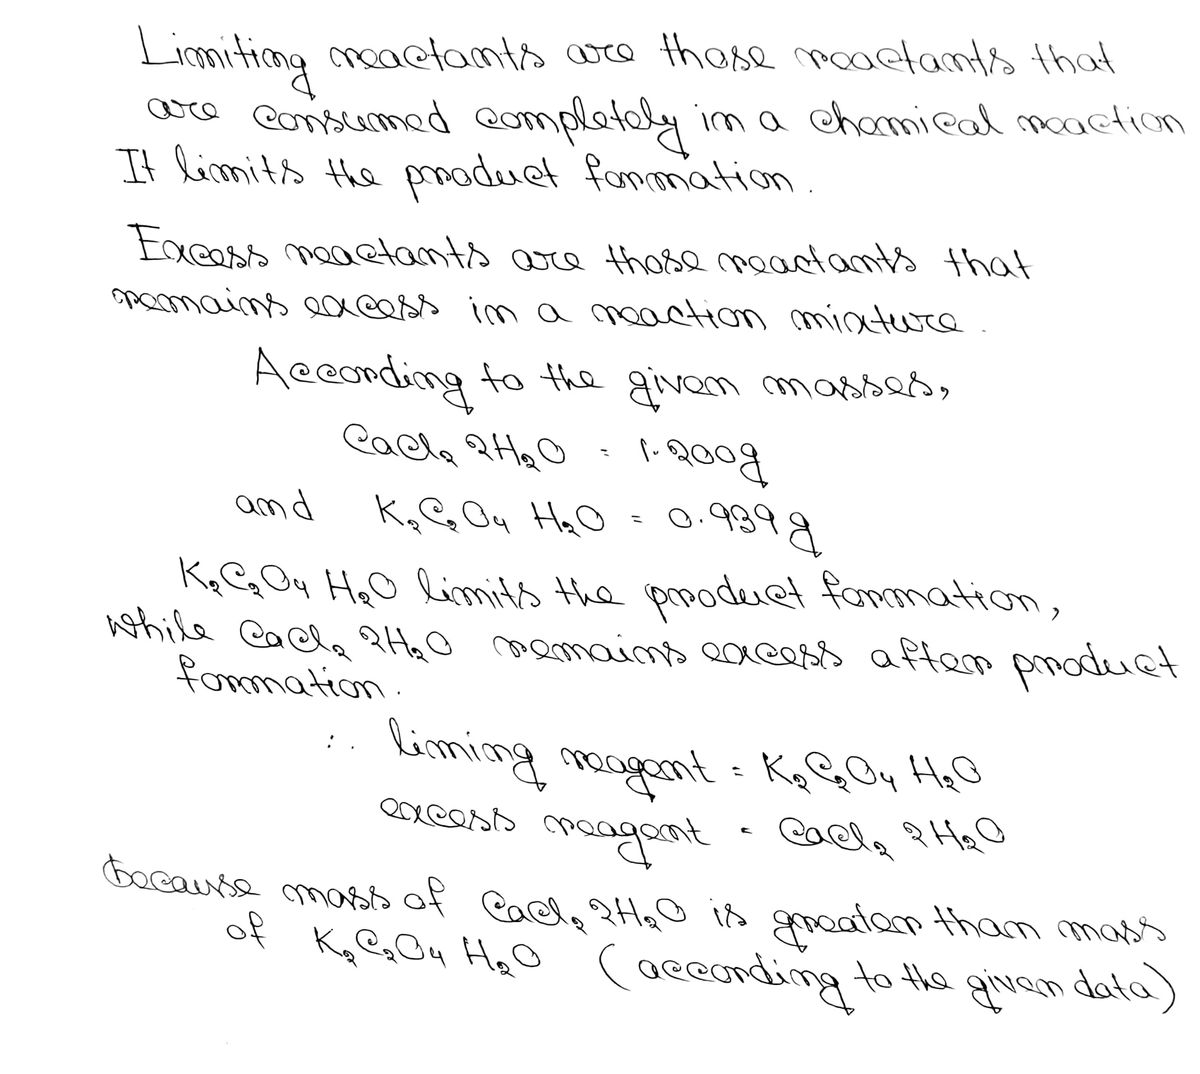 Limiting reactants are those reactants that
are consumed completely in a chemical reaction
It limits the product formation.
Excess reactants are those reactants that
remains excess in a reaction mixture.
According to the given masses,
CaCl₂ 2H₂O = 1.200g
and K₂C₂O₄ H₂O = 0.939g
K₂C₂O₄ H₂O limits the product formation,
while CaCl₂ 2H₂O remains excess after product
formation.
∴ liming reagent = K₂C₂O₄ H₂O
excess reagent = CaCl₂ 2H₂O
because mass of CaCl₂ 2H₂O is greater than mass
of K₂C₂O₄ H₂O (according to the given data)